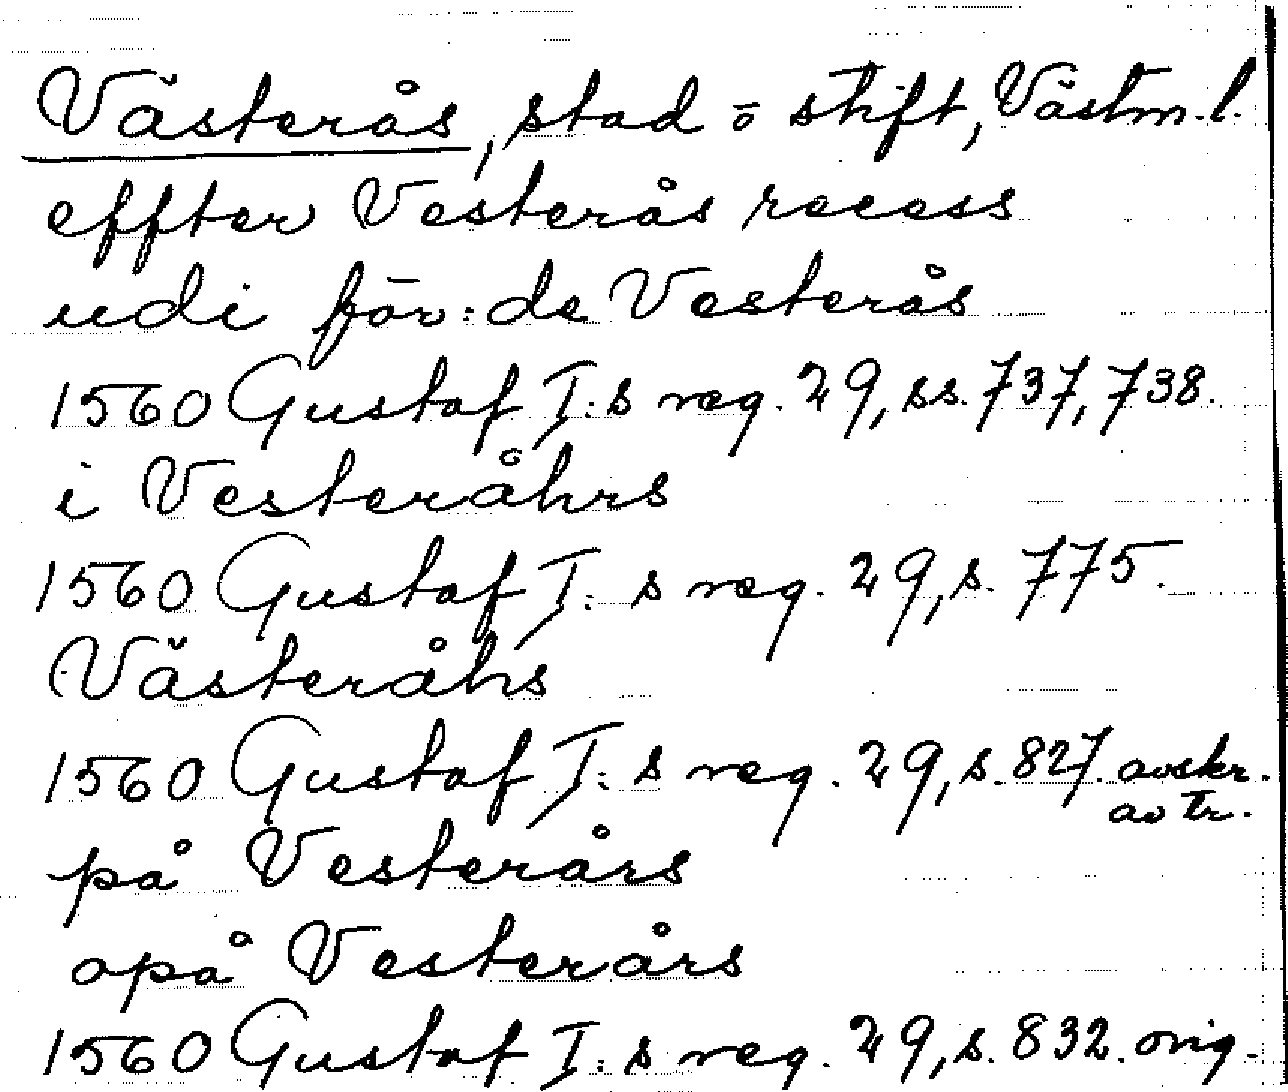 Västerås, stad o stift, Västm.l.
effter Vesterås recess
udi för:de Vesterås
1560 Gustaf I:s reg. 29, ss. 737, 738.
i Vesteråhrs
1560 Gustaf I:s reg. 29, s. 775.
Västeråhs
1560 Gustaf I:s reg. 29, s. 827 avskr.
av tr.
på Vesterårs
opå Vesterårs
1560 Gustaf I:s reg. 29, s. 832. orig.